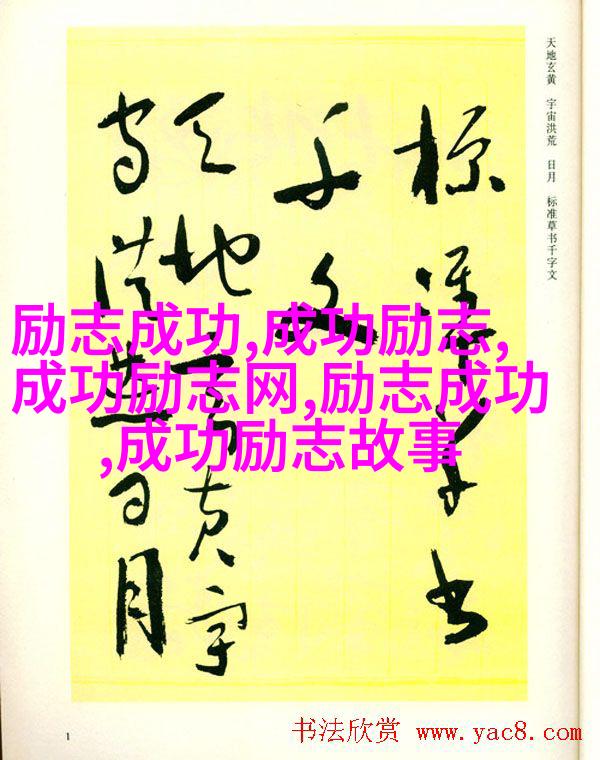 天地玄黄 宇宙洪荒 日月 标准草书千字文
標準草書
千文
天地玄黄宇
宙洪荒日月
励志成功,成功励志,
成功励志网,励志成功
,成功励志故事
1
书法欣赏 www.yac8.com